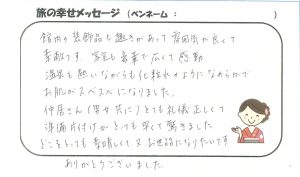 旅の幸せメッセージ（ペンネーム：　　　　　）
館内の装飾品も趣きがあって雰囲気が良くて
素敵です 客室も豪華で広くて感動
温泉も熱いながらも化粧水のようになめらかで
お肌がスベスベになりました。
仲居さん（男女共に）とても礼儀正しくて
準備片付けがとっても早くて驚きました
どこをとっても素晴しくて又お世話になりたいです
ありがとうございました。